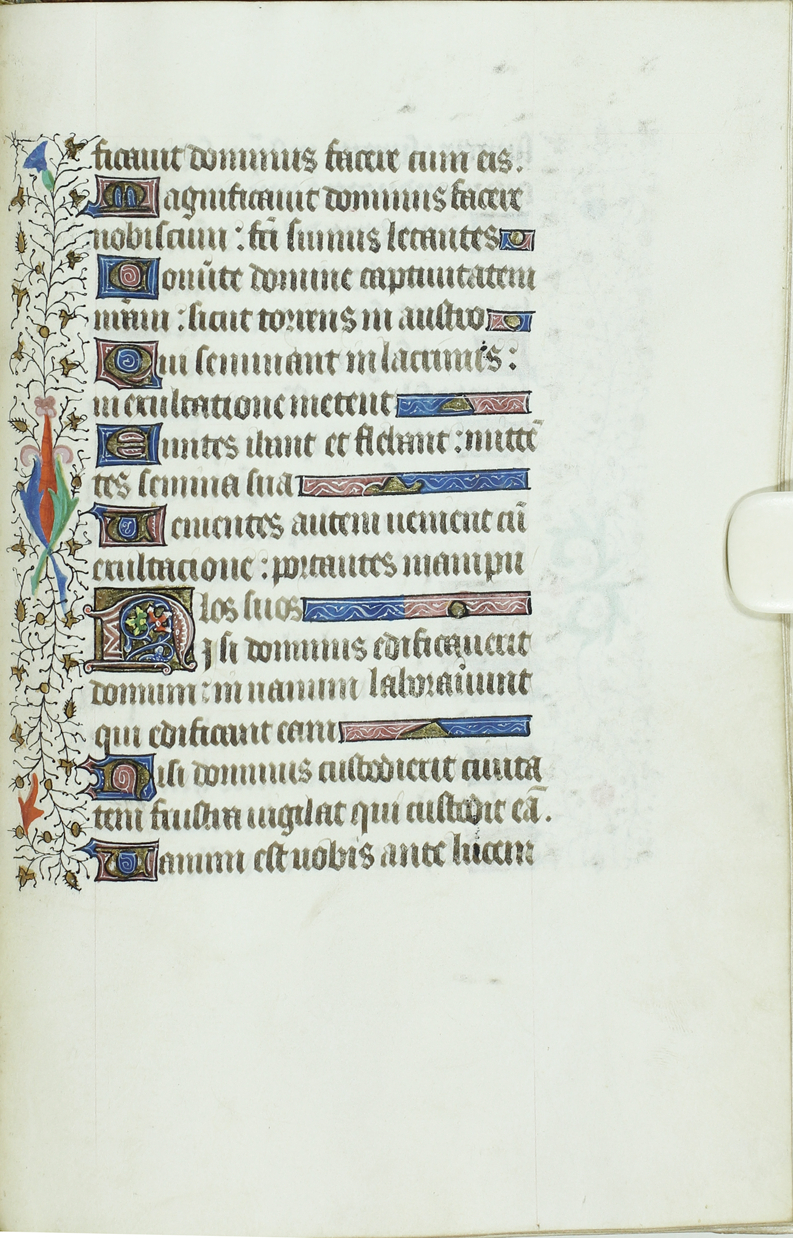 ficauit dominus facere cum eis.
Magnificauit dominus facere
nobiscum : fc̄i sumus letantes
Conūte domine captiuitatem
nr̄am : sicut torrens in austro
Qui seminant in lacrimis :
in exultatione metent
Euntes ibant et flebant : mittē
tes semina sua
Uenientes autem uenient cū
exultacione : portantes manipu
los suos
Nisi dominus edificauerit
domum : in uanum laborauūnt
qui edificant eam
Nisi dominus custodierit ciuita
tem frustra uigilat qui custodit eā.
Uanum est uobis ante lucem